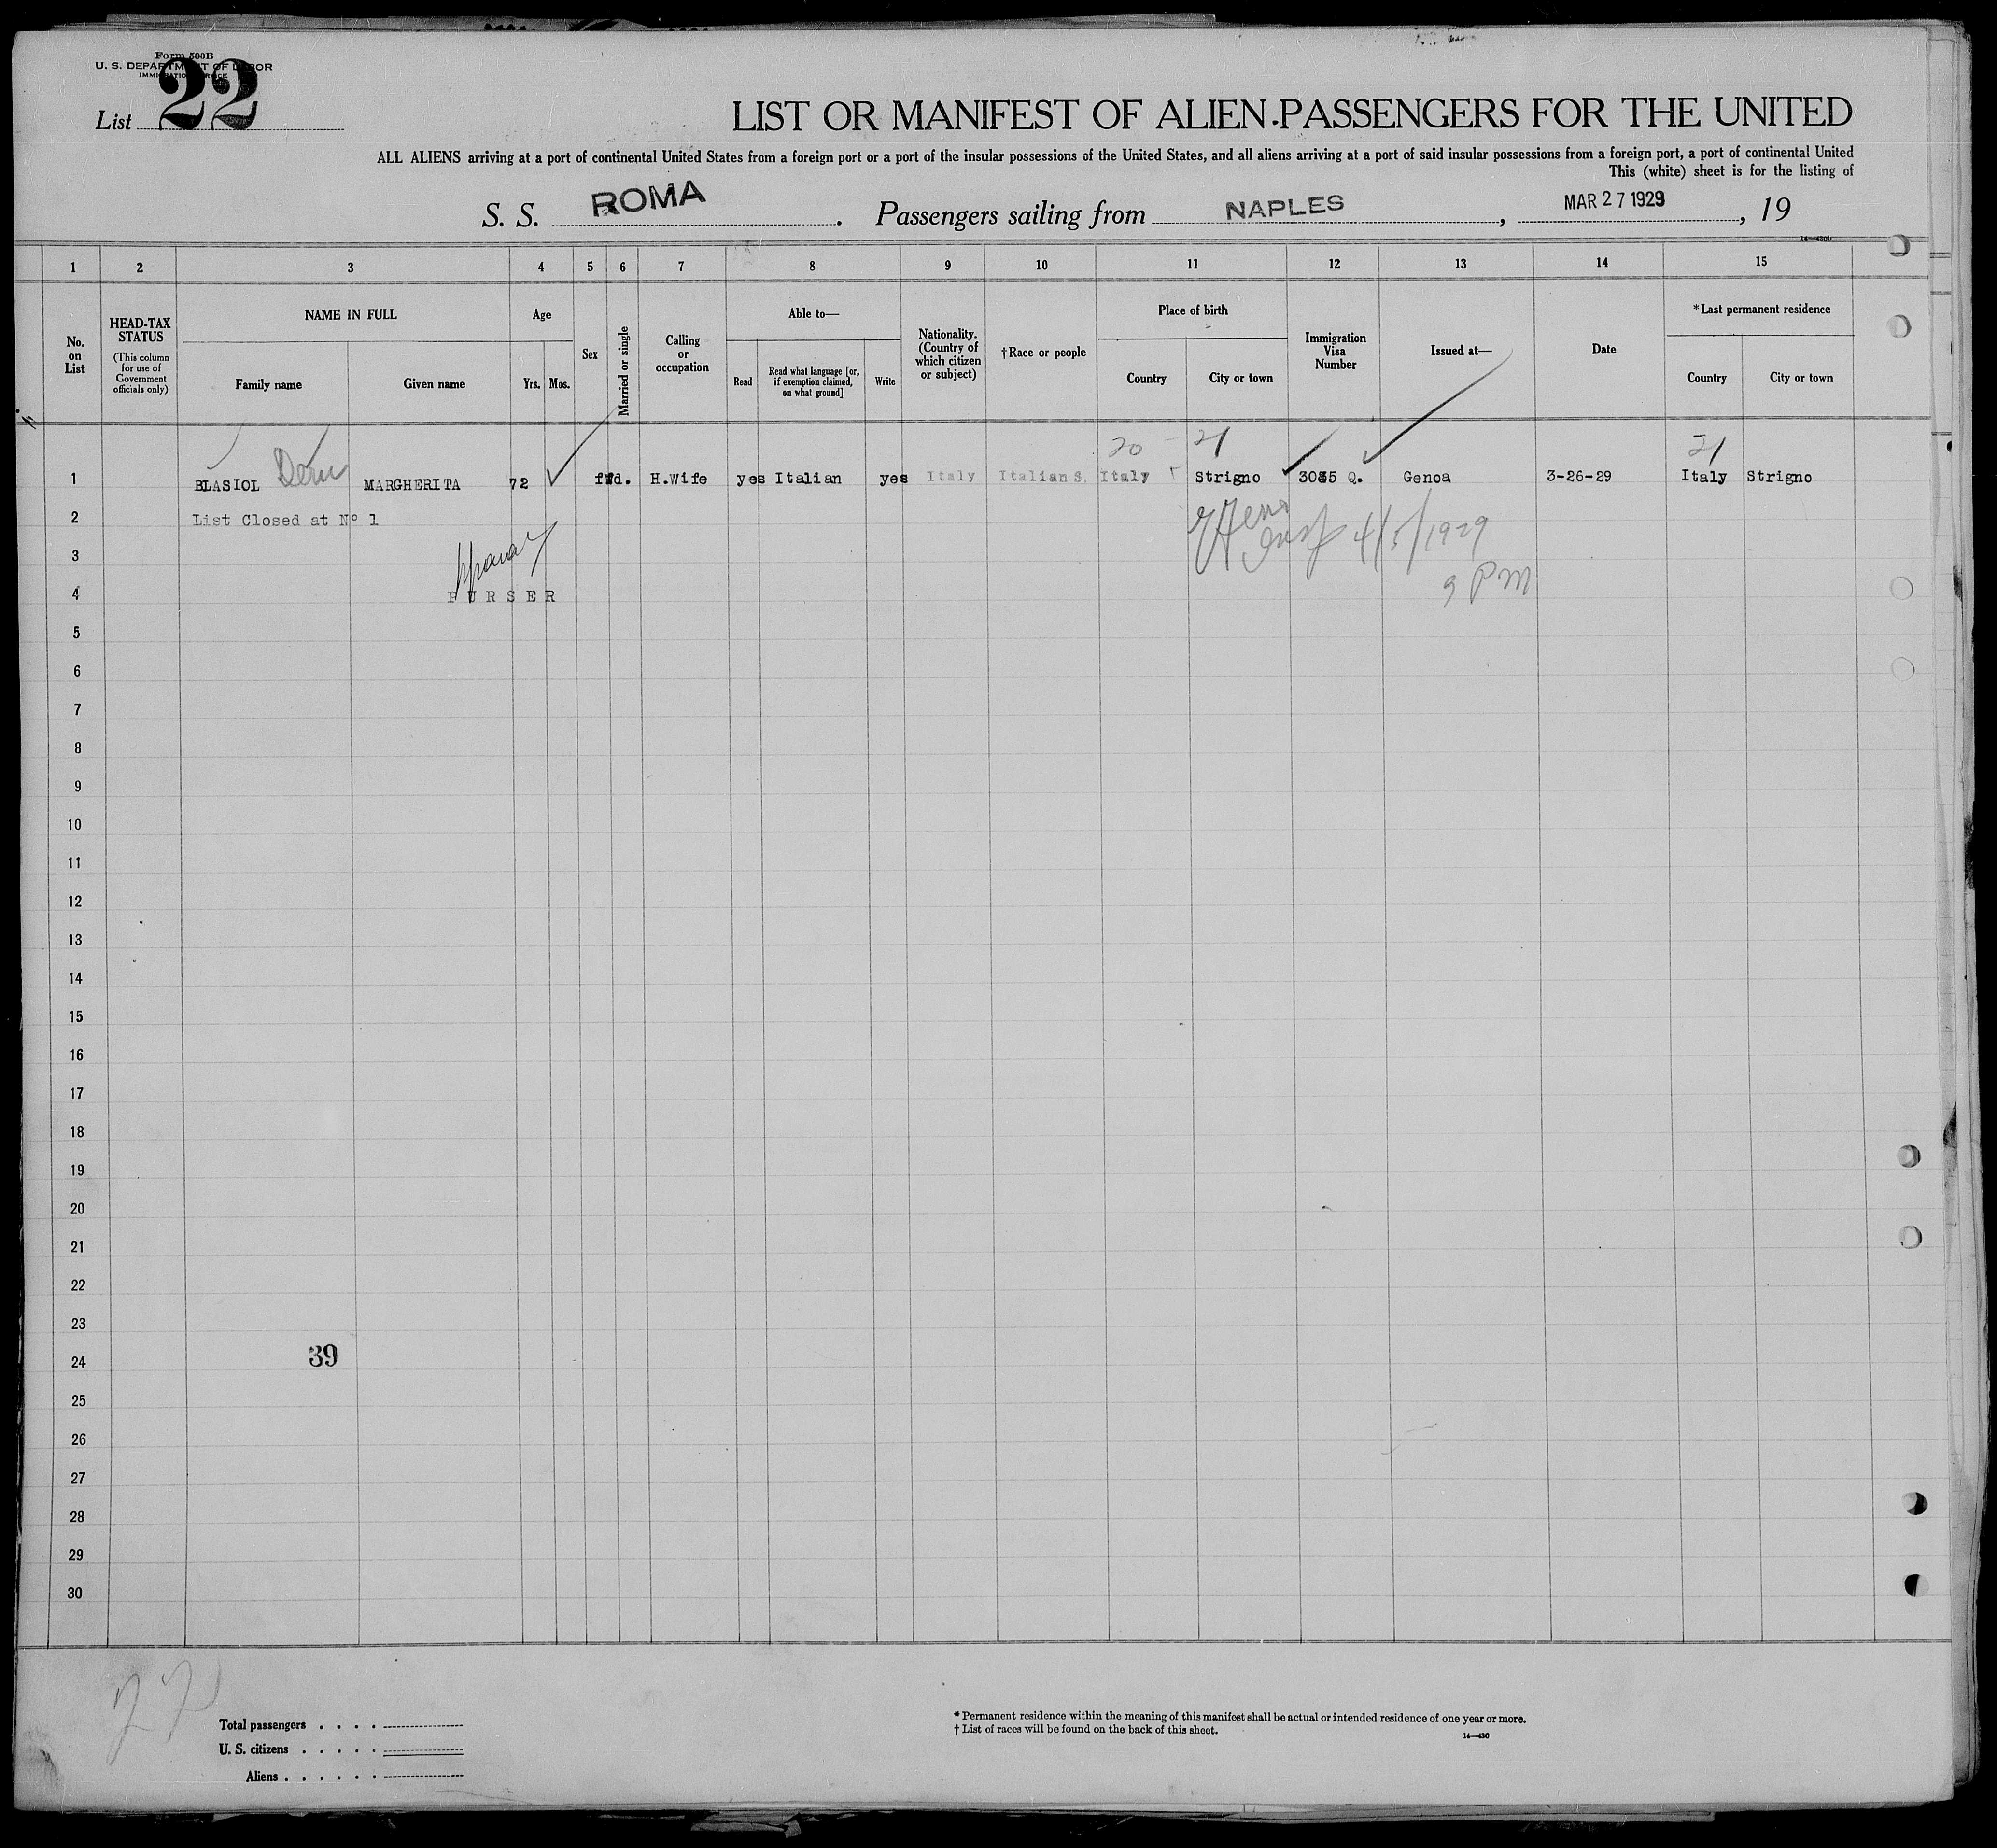 Form 500B
U. S. DEPARTMENT OF LABOR
IMMIGRATION SERVICE
List 22
LIST OR MANIFEST OF ALIEN PASSENGERS FOR THE UNITED
ALL ALIENS arriving at a port of continental United States from a foreign port or a port of the insular possessions of the United States, and all aliens arriving at a port of said insular possessions from a foreign port, a port of continental United
This (white) sheet is for the listing of
S. S. ROMA. Passengers sailing from NAPLES, MAR 27 1929, 19
1 2 3 4 5 6 7 8 9 10 11 12 13 14 15
No. on List
HEAD-TAX STATUS
(This column for use of Government officials only)
NAME IN FULL
Family name Given name
Age
Yrs. Mos.
Sex
Married or single
Calling or occupation
Able to—
Read
Read what language [or, if exemption claimed, on what ground]
Write
Nationality. (Country of which citizen or subject)
†Race or people
Place of birth
Country City or town
Immigration Visa Number
Issued at—
Date
*Last permanent residence
Country City or town
20 21 21
1 BLASIOL MARGHERITA 72 H.Wife yes Italian yes Italy Italian S. Italy Strigno Q. Genoa 3-26-29 Italy Strigno
2 List Closed at Nº 1
4/5/1929
3
9 PM
4 PURSER
5
6
7
8
9
10
11
12
13
14
15
16
17
18
19
20
21
22
23
39
24
25
26
27
28
29
30
Total passengers
U. S. citizens
Aliens
* Permanent residence within the meaning of this manifest shall be actual or intended residence of one year or more.
† List of races will be found on the back of this sheet.
14—430